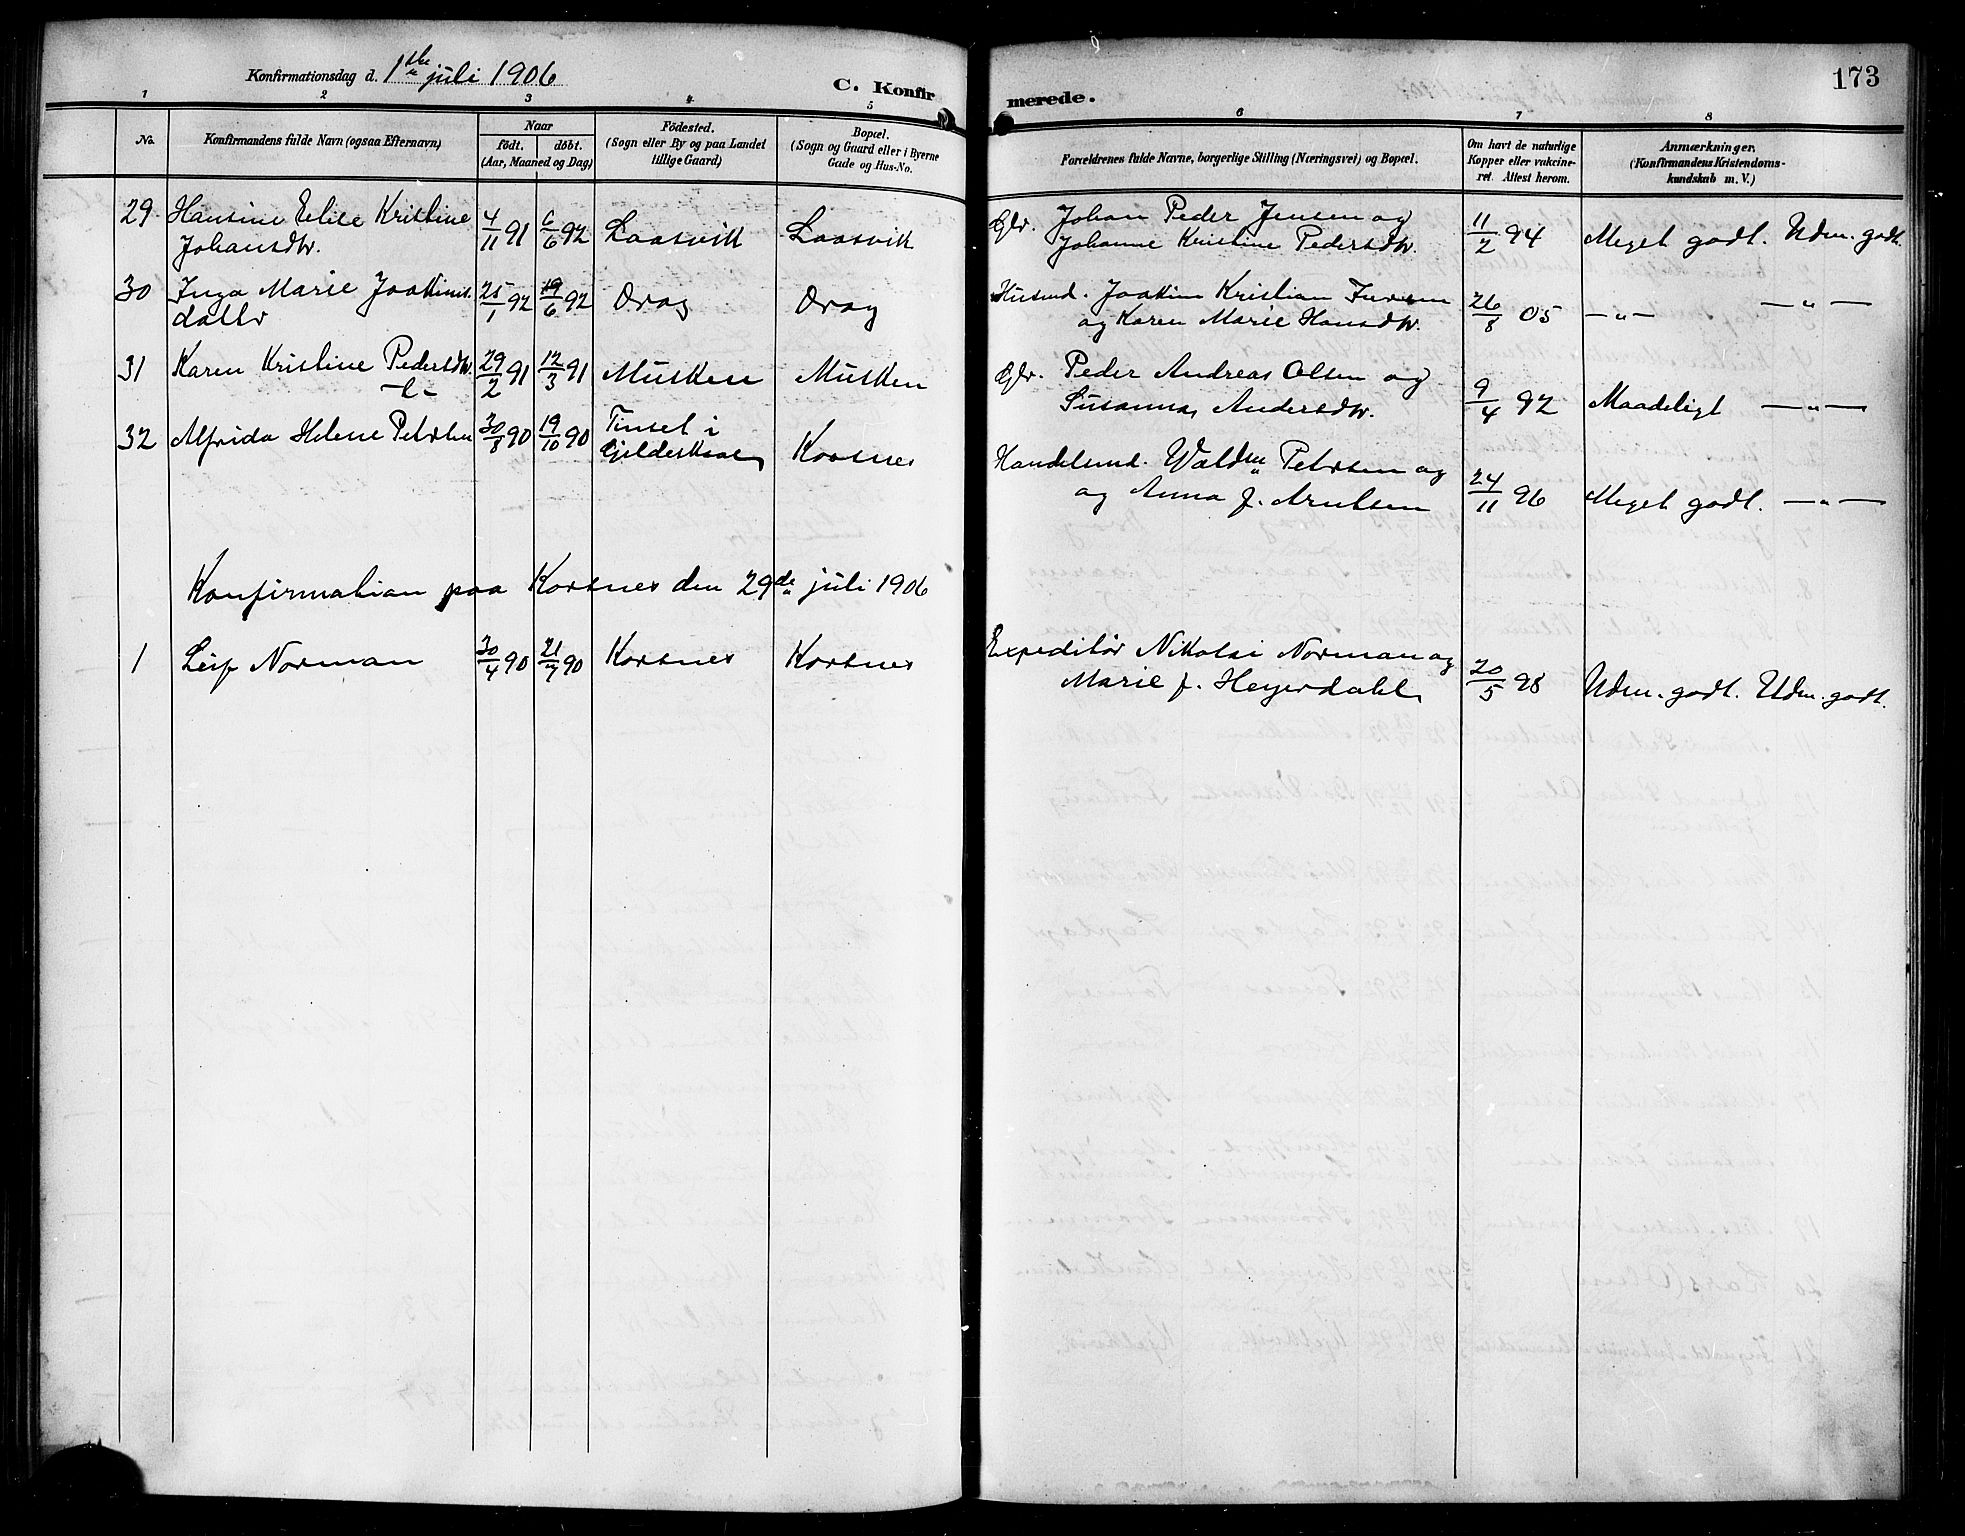 173
Konfirmationsdag d. 1ste juli 1906
C. Konfirmerede.
1 2 3 4 5 6 7 8
No.
Konfirmandens fulde Navn (ogsaa Efternavn)
Naar
födt. döbt.
(Aar, Maaned og Dag)
Födested.
(Sogn eller By og paa Landet
tillige Gaard)
Bopæl.
(Sogn og Gaard eller i Byerne
Gade og Hus-No.
Forældrenes fulde Navne, borgerlige Stilling (Næringsvei) og Bopæl.
Om havt de naturlige
Kopper eller vakcine-
ret. Attest herom.
Anmærkninger.
(Konfirmandens Kristendoms-
kundskab m. V.)
29 Hansine Elise Kristine
Johansdtr. 4/11 91 6/6 92 Laasvik Laasvik
Glr. Johan Peder Jensen og
Johanne Kristine Pedersdtr. 11/2 94 Meget godt. Udm. godt.
30 Inga Marie Joakims
datter 25/1 92 19/6 92 Drag Drag
Husmd. Joakim Kristian
og Karen Marie Hansdtr. 26/8 05 —"— —"—
31 Karen Kristine Pedersdtr. 29/2 91 12/3 91 Musken Musken
Glr. Peder Andreas Olsen og
Susanna Andersdtr. 9/4 92 Maadeligt —"—
32 Alfrida Helene Petersen 30/8 90 19/10 90 i
Gjilderskaal Korsnes
Handelsmd. Petersen og
og Anna f. Arntsen 24/11 96 Meget godt. —"—
Konfirmation paa Korsnes den 29de juli 1906
1 Leif Norman 30/4 90 21/7 90 Korsnes Korsnes
Expeditör Nikolai Norman og
Marie f. Heyerdahl 20/5 98 Udm. godt. Udm. godt.